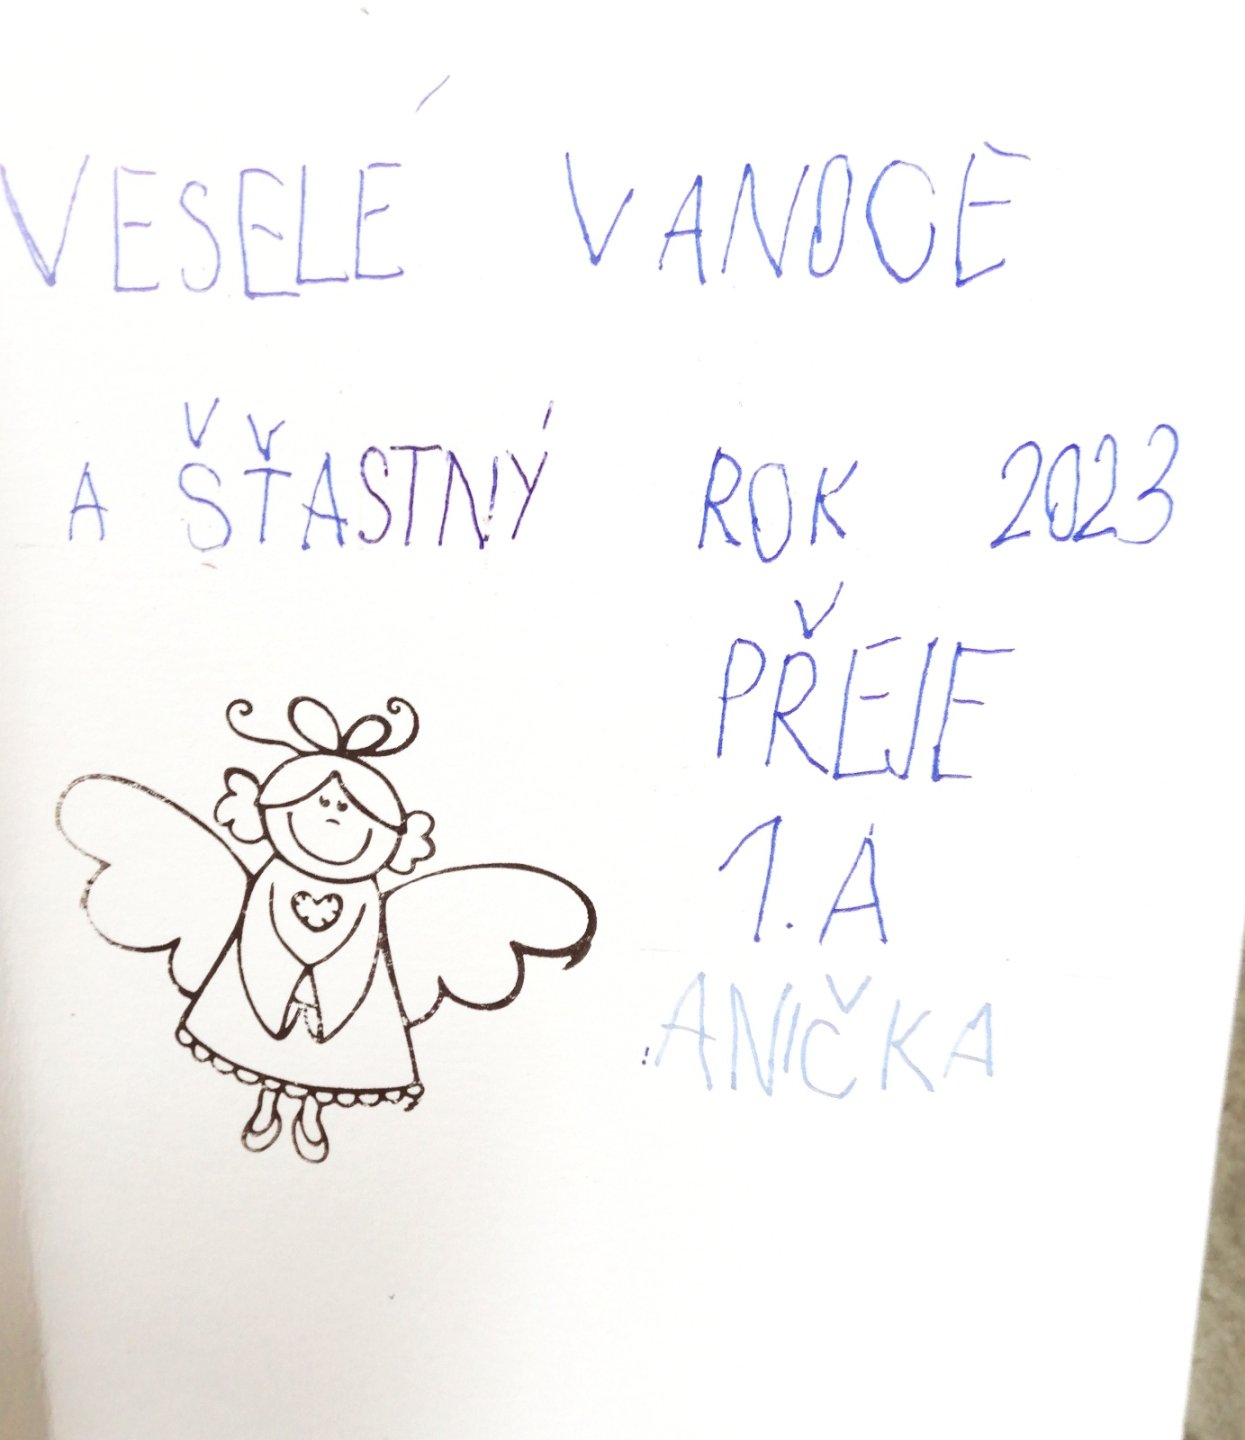 VESELÉ VANOCE
A ŠŤASTNÝ ROK 2023
PŘEJE
1.A
ANIČKA